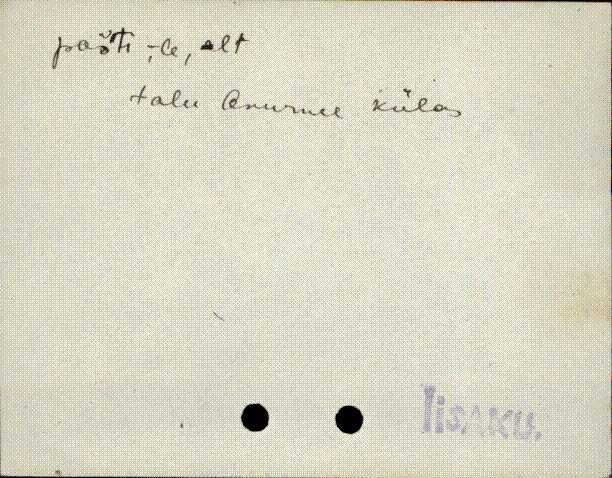 pošti, -le, -lt
talu Onurme külas
Iisaku.